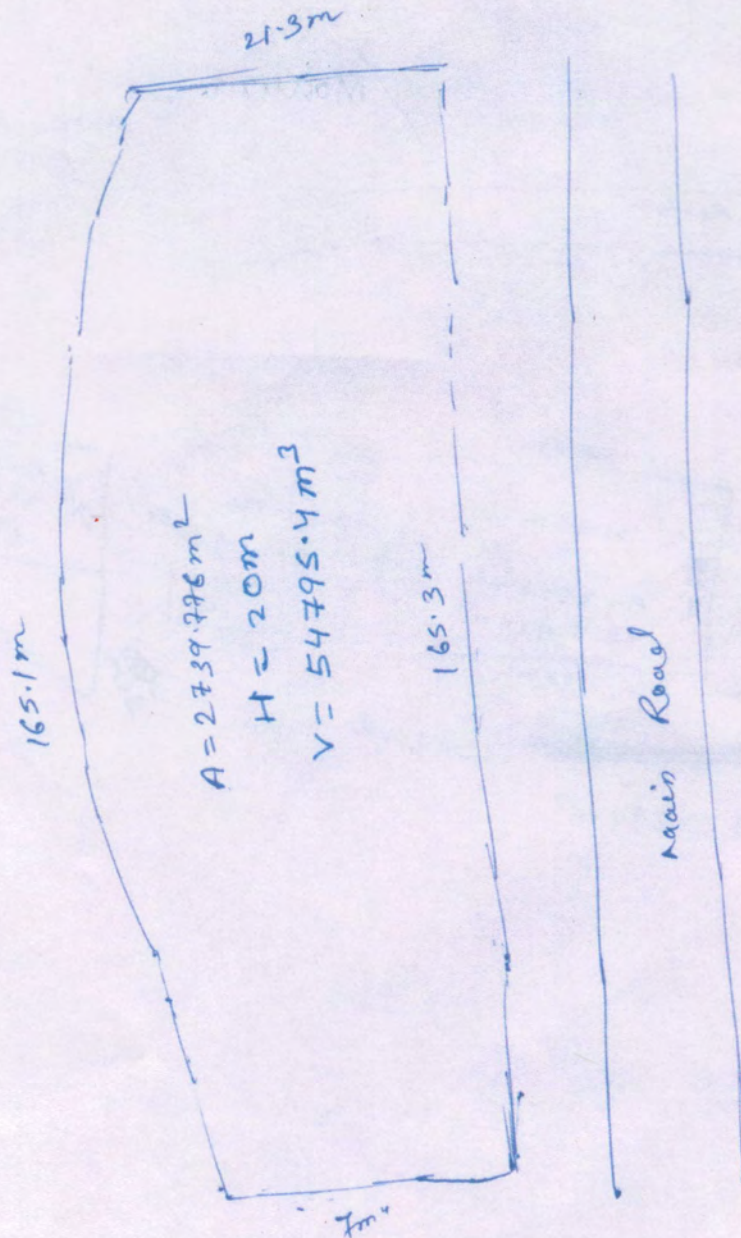 21.3m
165.1m
A = 2739.776m²
H = 20m
V = 54795.4m³
165.3m
Main Road
7m